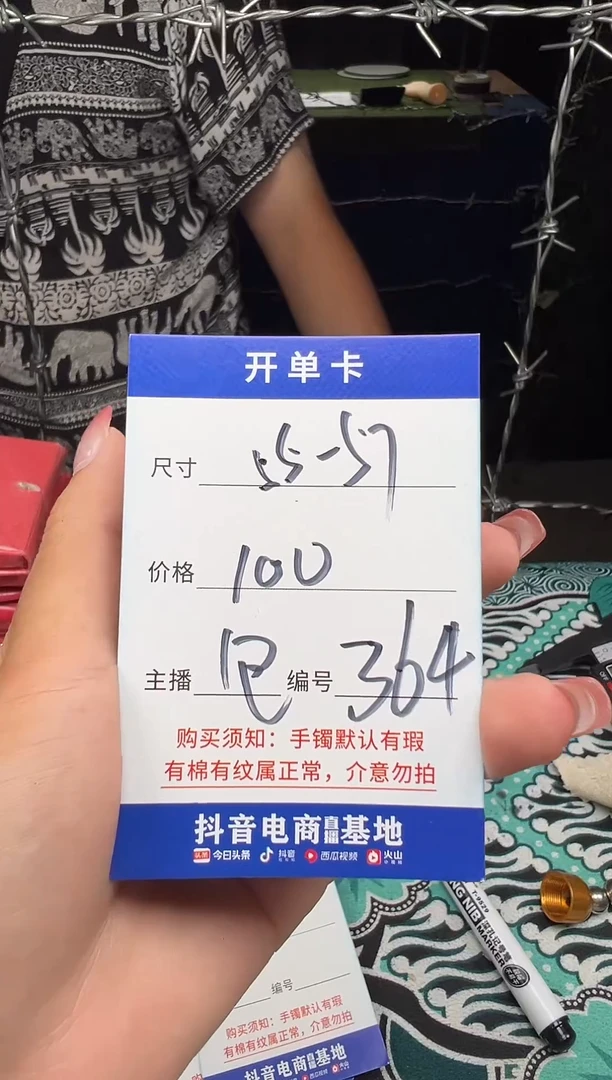 开单卡
尺寸 55-57
价格 100
主播 编号 364
购买须知：手镯默认有瑕
有棉有纹属正常，介意勿拍
抖音电商直播基地
头条 今日头条 抖音 西瓜视频 火山
编号
购买须知：手镯默认有瑕
有棉有纹属正常，介意勿拍
抖音电商直播基地
MARKER